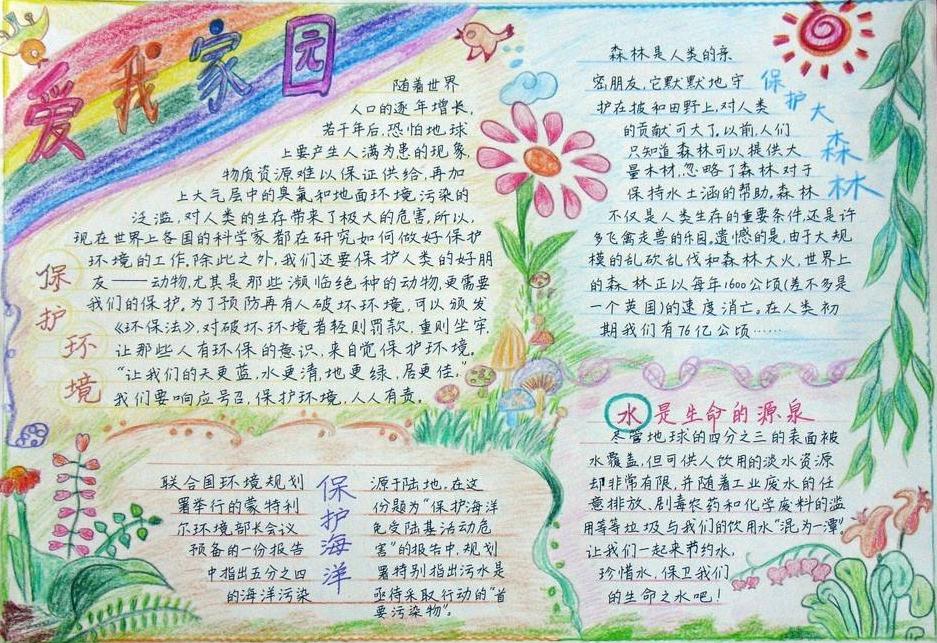 爱我家园
保护环境
随着世界
人口的逐年增长,
若干年后,恐怕地球
上要产生人满为患的现象,
物质资源难以保证供给,再加
上大气层中的臭氧和地面环境污染的
泛滥,对人类的生存带来了极大的危害。所以,
现在世界上各国的科学家都在研究如何做好保护
环境的工作。除此之外,我们还要保护人类的好朋
友——动物,尤其是那些濒临绝种的动物,更需要
我们的保护。为了预防再有人破坏环境,可以颁发
《环保法》,对破坏环境者轻则罚款,重则坐牢,
让那些人有环保的意识,来自觉保护环境。
“让我们的天更蓝,水更清,地更绿,居更佳。”
我们要响应号召,保护环境,人人有责。
保护大森林
森林是人类的亲
密朋友,它默默地守
护在坡和田野上,对人类
的贡献可大了,以前,人们
只知道森林可以提供大
量木材,忽略了森林对于
保持水土涵的帮助,森林
不仅是人类生存的重要条件,还是许
多飞禽走兽的乐园。遗憾的是,由于大规
模的乱砍乱伐和森林大火,世界上
的森林正以每年1600公顷(差不多是
一个英国)的速度消亡。在人类初
期我们有76亿公顷……
保护海洋
联合国环境规划
署举行的蒙特利
尔环境部长会议
预备的一份报告
中指出五分之四
的海洋污染
源于陆地,在这
份题为“保护海洋
免受陆基活动危
害”的报告中,规划
署特别指出污水是
亟待采取行动的“首
要污染物”。
水是生命的源泉
尽管地球的四分之三的表面被
水覆盖,但可供人饮用的淡水资源
却非常有限,并随着工业废水的任
意排放、剧毒农药和化学废料的滥
用等等垃圾与我们的饮用水“混为一潭”
让我们一起来节约水,
珍惜水,保卫我们
的生命之水吧!